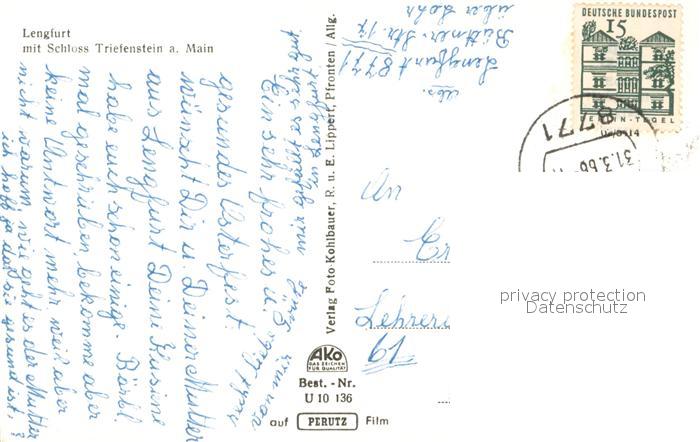 Lengfurt
mit Schloss Triefenstein a. Main
Ein sehr frohes u.
gesundes Osterfest.
wünscht Dir u. Deiner Mutter
aus Lengfurt Deine
habe euch schon einige- Bärbl.
mal geschrieben, bekomme aber
keine Antwort mehr, weiß aber
nicht warum, wie geht es der Mutter
ich hoff ja daß sie gesund ist.
Verlag Foto-Kohlbauer, R. u. E. Lippert, Pfronten / Allg.
Abs.
Lengfurt 8771
Büttner-Str. 17
über Lohr
DEUTSCHE BUNDESPOST
15
BERLIN-TEGEL
8771
31.3.66
An
Lehrer
61
AKO
DAS ZEICHEN
FÜR QUALITÄT
Best. - Nr.
U 10 136
auf PERUTZ Film
privacy protection
Datenschutz